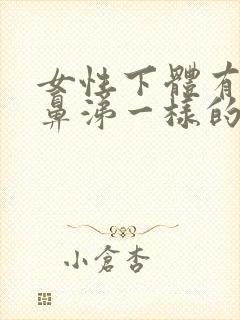 女性下體有
鼻涕一樣的
小倉杏